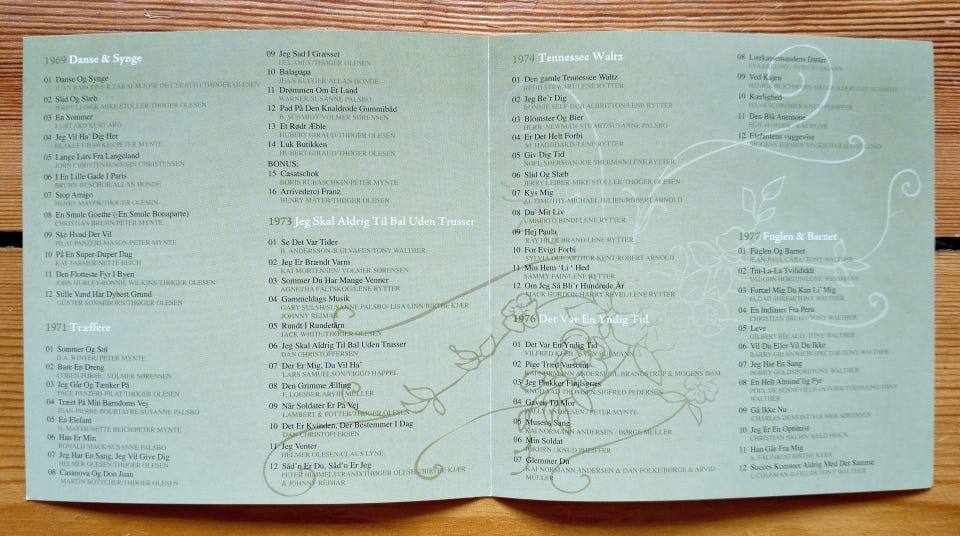 1969 Danse & Synge
01 Danse Og Synge
02 Slid Og Slæb
JERRY LEIBER-MIKE STOLLER/THØGER OLESEN
03 En Sommer
KURT ARD/KURT ARD
04 Jeg Vil Ha' Dig Her
BLAKLEY/HAWKES/PETER MYNTE
05 Lange Lars Fra Langeland
JOHN CHRISTENSEN/JOHN CHRISTENSEN
06 I En Lille Gade I Paris
BRUHN/BUSCHOR/ALLAN HONDE
07 Stop Amigo
HENRY MAYER/THØGER OLESEN
08 En Smule Goethe (-En Smule Bonaparte)
CHRISTIAN BRUHN/PETER MYNTE
09 Ske Hvad Der Vil
PILAT/PANZERI-MASON/PETER MYNTE
10 På En Super-Duper Dag
KAY TARMER/NETTE REICH
11 Den Flotteste Fyr I Byen
JOHN HURLEY-RONNIE WILKINS/THØGER OLESEN
12 Stille Vand Har Dybest Grund
GÜNTER SONNEBORN/THØGER OLESEN
1971 Træffere
01 Sommer Og Sol
D.A. WINTER/ PETER MYNTE
02 Bare En Dreng
VOLMER SØRENSEN
03 Jeg Går Og Tænker På
PACE/PANZERI-PILAT/THØGER OLESEN
04 Træet På Min Barndoms Vej
JEAN-PIERRE BOURTAYRE/SUSANNE PALSBO
05 En Elefant
H. MAYER/NETTE REICH/PETER MYNTE
06 Han Er Min
RONALD MACK/SUSANNE PALSBO
07 Jeg Har En Sang, Jeg Vil Give Dig
HELMER OLESEN/THØGER OLESEN
08 Casanova Og Don Juan
MARTIN BÖTTCHER/THØGER OLESEN
09 Jeg Sad I Græsset
DELANEY/THØGER OLESEN
10 Balapapa
JEAN KLUGER/ALLAN HONDE
11 Drømmen Om Et Land
WARNER/SUSANNE PALSBO
12 Pad På Den Knaldrøde Gummibåd
B. SCHMIDT/VOLMER SØRENSEN
13 Et Rødt Æble
HUBERT GIRAUD/THØGER OLESEN
14 Luk Butikken
HUBERT GIRAUD/THØGER OLESEN
BONUS:
15 Casatschok
BORIS RUBASCHKIN/PETER MYNTE
16 Arrivederci Franz
HENRY MAYER/THØGER OLESEN
1973 Jeg Skal Aldrig Til Bal Uden Trusser
01 Se Det Var Tider
B. ANDERSSON-B.ULVAEUS/TONY WALTHER
02 Jeg Er Brændt Varm
KAI MORTENSEN/ VOLMER SØRENSEN
03 Sommer Du Har Mange Venner
AGNETHA FÄLTSKOG/LENE RYTTER
04 Gammeldags Musik
GARY SULSH/SUSANNE PALSBO/ LISA LINN/BIRTHE KJÆR/
JOHNNY REIMAR
05 Rundt I Rundetårn
JACK WHITE/THØGER OLESEN
06 Jeg Skal Aldrig Til Bal Uden Trusser
DAN CHRISTOFFERSEN
07 Der Er Mig, Du Vil Ha'
LARS SAMUELSON/VIGGO HAPPEL
08 Den Grimme Ælling
F. LOESSER/ARVID MÜLLER
09 Når Soldater Er På Vej
LAMBERT & POTTER/THØGER OLESEN
10 Det Er Kvinden, Der Bestemmer I Dag
DAN CHRISTOFFERSEN
11 Jeg Venter
HELMER OLESEN/CLAUS LYNE
12 Såd'n Er Du, Såd'n Er Jeg
PETER HIMMELSTRAND/THØGER OLESEN/BIRTHE KJÆR
& JOHNNY REIMAR
1974 Tennessee Waltz
01 Den gamle Tennessee Waltz
REDD STEWART/LENE RYTTER
02 Jeg Be'r Dig
03 Blomster Og Bier
HERB. NEWMAN-STUART/SUSANNE PALSBO
04 Er Det Helt Forbi
M. HADJIDAKIS/LENE RYTTER
05 Giv Dig Tid
NOEL SHERMAN-JOE SHERMAN/LENE RYTTER
06 Slid Og Slæb
JERRY LEIBER-MIKE STOLLER/THØGER OLESEN
07 Kys Mig
AL TIMOTHY-MICHAEL JULIEN/ROBERT ARNOLD
08 Du' Mit Liv
UMBERTO BINDI/LENE RYTTER
09 Hej Paula
RAY HILDEBRAND/LENE RYTTER
10 For Evigt Forbi
SYLVIA DEE-ARTHUR KENT/ROBERT ARNOLD
11 Min Hem 'Li ' Hed
SAMMY FAIN/LENE RYTTER
12 Om Jeg Så Bli'r Hundrede År
MACK GORDON-HARRY REVEL/LENE RYTTER
1976 Det Var En Yndig Tid
01 Det Var En Yndig Tid
VILFRED KJÆR/SVEN BUEMANN
02 Pige Træd Varsomt
KAI NORMANN ANDERSEN/L.BRANDSTRUP & MOGENS DAM
03 Jeg Plukker Fløjlsgræs
KNUD VAD THOMSEN/SIGFRED PEDERSEN
04 Gaven Til Mor
BILLY ANDERSEN / PETER MYNTE
05 Musens Sang
KAI NORMANN ANDERSEN / BØRGE MÜLLER
06 Min Soldat
/ KNUD PHEIFFER
07 Glemmer Du
KAI NORMANN ANDERSEN & DAN FOLKE/BØRGE & ARVID
MÜLLER
08 Lirekassemandens Datter
09 Ved Kajen
10 Kærlighed
11 Den Blå Anemone
12 Elefantens vuggevise
1977 Fuglen & Barnet
01 Fuglen Og Barnet
JEAN-PAUL CARA/ TONY WALTHER
02 Tra-La-La Tvilididdi
VAUGHN HORTON/LONE WESSMANN
03 Fortæl Mig Du Kan Li' Mig
ELDAD SHREM/TONY WALTHER
04 En Indianer Fra Peru
CHRISTIAN BRUHN/ TONY WALTHER
05 Leve
GILBERT BECAUD/ TONY WALTHER
06 Vil Du Eller Vil Du Ikke
BARRY GREENWICH-SPECTOR/TONY WALTHER
07 Jeg Har En Sang
BOBBY GOLDSBORO/TONY WALTHER
08 En Helt Almind'lig Fyr
WALTHER
09 Gå Ikke Nu
CHARLES DUMONT/VOLMER SØRENSEN
10 Jeg Er En Optimist
CHRISTIAN BRUHN/ KELD HEICK
11 Han Går Fra Mig
A. FÄLTSKOG/BIRTHE KJÆR
12 Succes Kommer Aldrig Med Det Samme
C.COLEMAN-D.FIELDS/TONY WALTHER